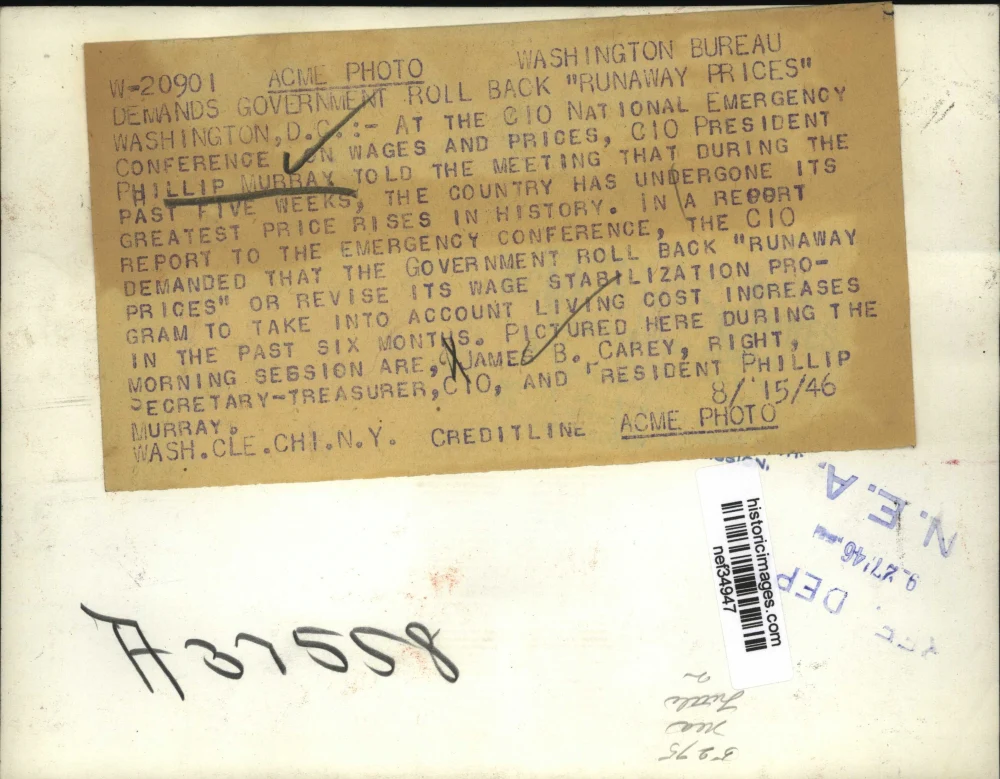 W-20901 ACME PHOTO WASHINGTON BUREAU
DEMANDS GOVERNMENT ROLL BACK "RUNAWAY PRICES"
WASHINGTON, D.C.:- AT THE CIO NATIONAL EMERGENCY
CONFERENCE ON WAGES AND PRICES, CIO PRESIDENT
PHILLIP MURRAY TOLD THE MEETING THAT DURING THE
PAST FIVE WEEKS, THE COUNTRY HAS UNDERGONE ITS
GREATEST PRICE RISES IN HISTORY. IN A REPORT
REPORT TO THE EMERGENCY CONFERENCE, THE CIO
DEMANDED THAT THE GOVERNMENT ROLL BACK "RUNAWAY
PRICES" OR REVISE ITS WAGE STABILIZATION PRO-
GRAM TO TAKE INTO ACCOUNT LIVING COST INCREASES
IN THE PAST SIX MONTHS. PICTURED HERE DURING THE
MORNING SESSION ARE, JAMES B. CAREY, RIGHT,
SECRETARY-TREASURER, CIO, AND PRESIDENT PHILLIP
MURRAY. 8/15/46
WASH.CLE.CHI.N.Y. CREDITLINE ACME PHOTO
N.E.A.
historicimages.com
nef34947
A37558